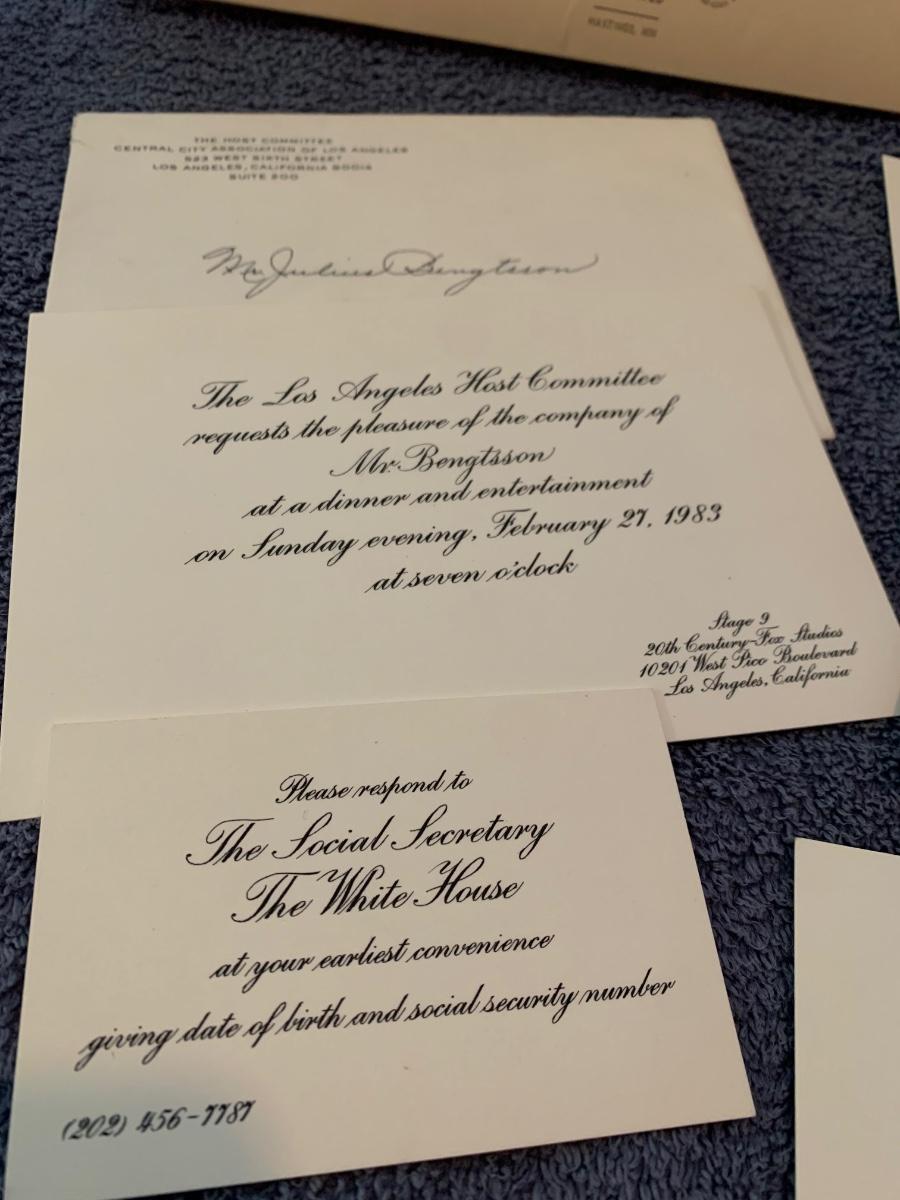 HASTINGS, MN
THE HOST COMMITTEE
CENTRAL CITY ASSOCIATION OF LOS ANGELES
523 WEST SIXTH STREET
LOS ANGELES, CALIFORNIA 90014
SUITE 200
Mr. Julius Bengtsson
The Los Angeles Host Committee
requests the pleasure of the company of
Mr. Bengtsson
at a dinner and entertainment
on Sunday evening, February 27, 1983
at seven o'clock
Stage 9
20th Century-Fox Studios
10201 West Pico Boulevard
Los Angeles, California
Please respond to
The Social Secretary
The White House
at your earliest convenience
giving date of birth and social security number
(202) 456-7787